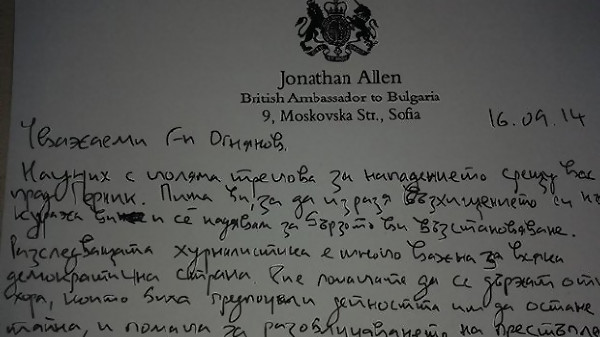 Jonathan Allen
British Ambassador to Bulgaria
9, Moskovska Str., Sofia
16.09.14
Уважаеми Г-н Огнянов,
Научих с голяма тревога за нападението срещу вас
град Перник. Пиша ви, за да изразя възхищението си
куража ви и се надявам за бързото ви възстановяване.
Разследващата журналистика е много важна за всяка
демократична страна. Вие помагате да се държат отг
хора, които биха предпочели дейността им да остане
тайна, и помага за разобличаването на престъпле